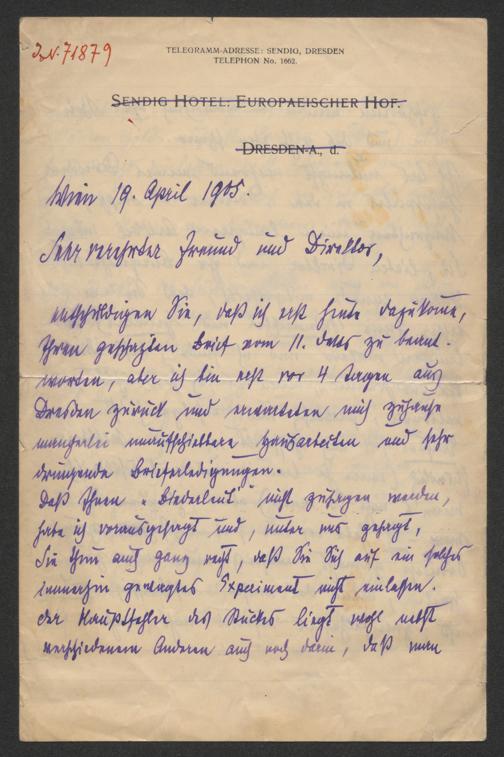 J.N. 71879
TELEGRAMM-ADRESSE: SENDIG, DRESDEN
TELEPHON No. 1662.
SENDIG HOTEL: EUROPAEISCHER HOF.
DRESDEN-A., d.
Wien 19. April 1905.
Sehr verehrter Freund und Direktor,
entschuldigen Sie, daß ich erst heute dazukome,
Ihren geschäzten Brief vom 11. dets zu beant-
worten, aber ich bin erst vor 4 Tagen aus
Dresden zurück und erwarteten mich zuhause
mancherlei unaufschiebbare Hausarbeiten und sehr
dringende Brieferledigungen.
Daß Ihnen "Biederleut" nicht zusagen werden,
habe ich vorausgesagt und, unter uns gesagt,
Sie thun auch ganz recht, daß Sie Sich auf ein solches
immerhin gewagtes Experiment nicht einlassen.
Der Hauptfehler des Stückes liegt wohl nebst
verschiedenem Anderen auch noch darin, daß man